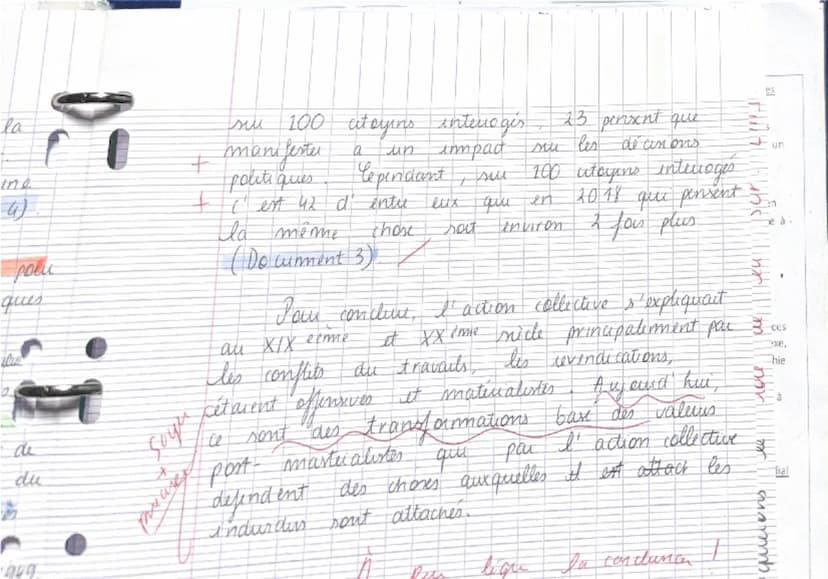 sur 100 citoyens interrogés, 23 pensent que
manifester a un impact sur les décisions
politiques. Cependant, sur 100 citoyens interrogés
c'est 42 d'entre eux qui en 2018 qui pensent
la même chose, soit environ 2 fois plus
(Document 3)
Pour conclure, l'action collective s'expliquait
au XIX eième et XX ième siècle principalement par
les conflits du travails, les revendications,
cétaient offensives et matérialistes. Aujourd'hui,
ce sont des transformations basé des valeurs
post-mastérialistes qui par l'action collective
défendent des choses auxquelles il est attach les
individus sont attachés.
Soyez
+
précise
la conclusion !
la
ine
4)
pour
ques
de
du
1949
es
un
e à
ces
hie
à